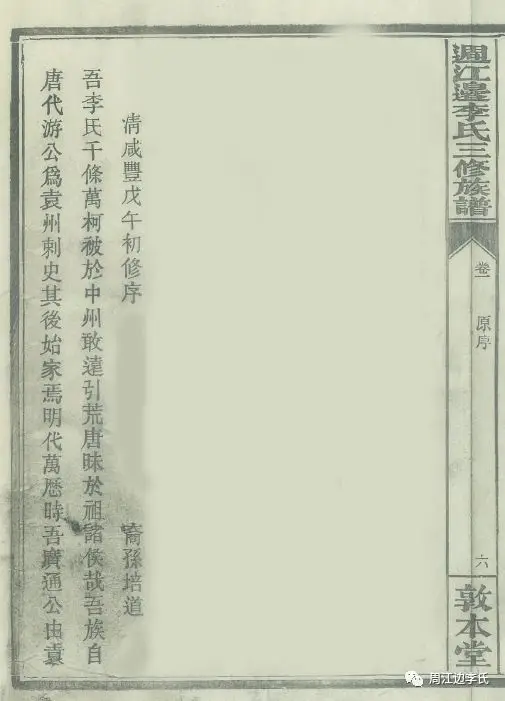 週江邊李氏三修族譜
卷一
原序
六
敦本堂
清咸豐戊午初修序
裔孫培道
吾李氏千條萬柯被於中州敢遠引荒唐昧於祖諸侯哉吾族自
唐代游公爲袁州刺史其後始家焉明代萬歷時吾廣通公由袁
周江边李氏